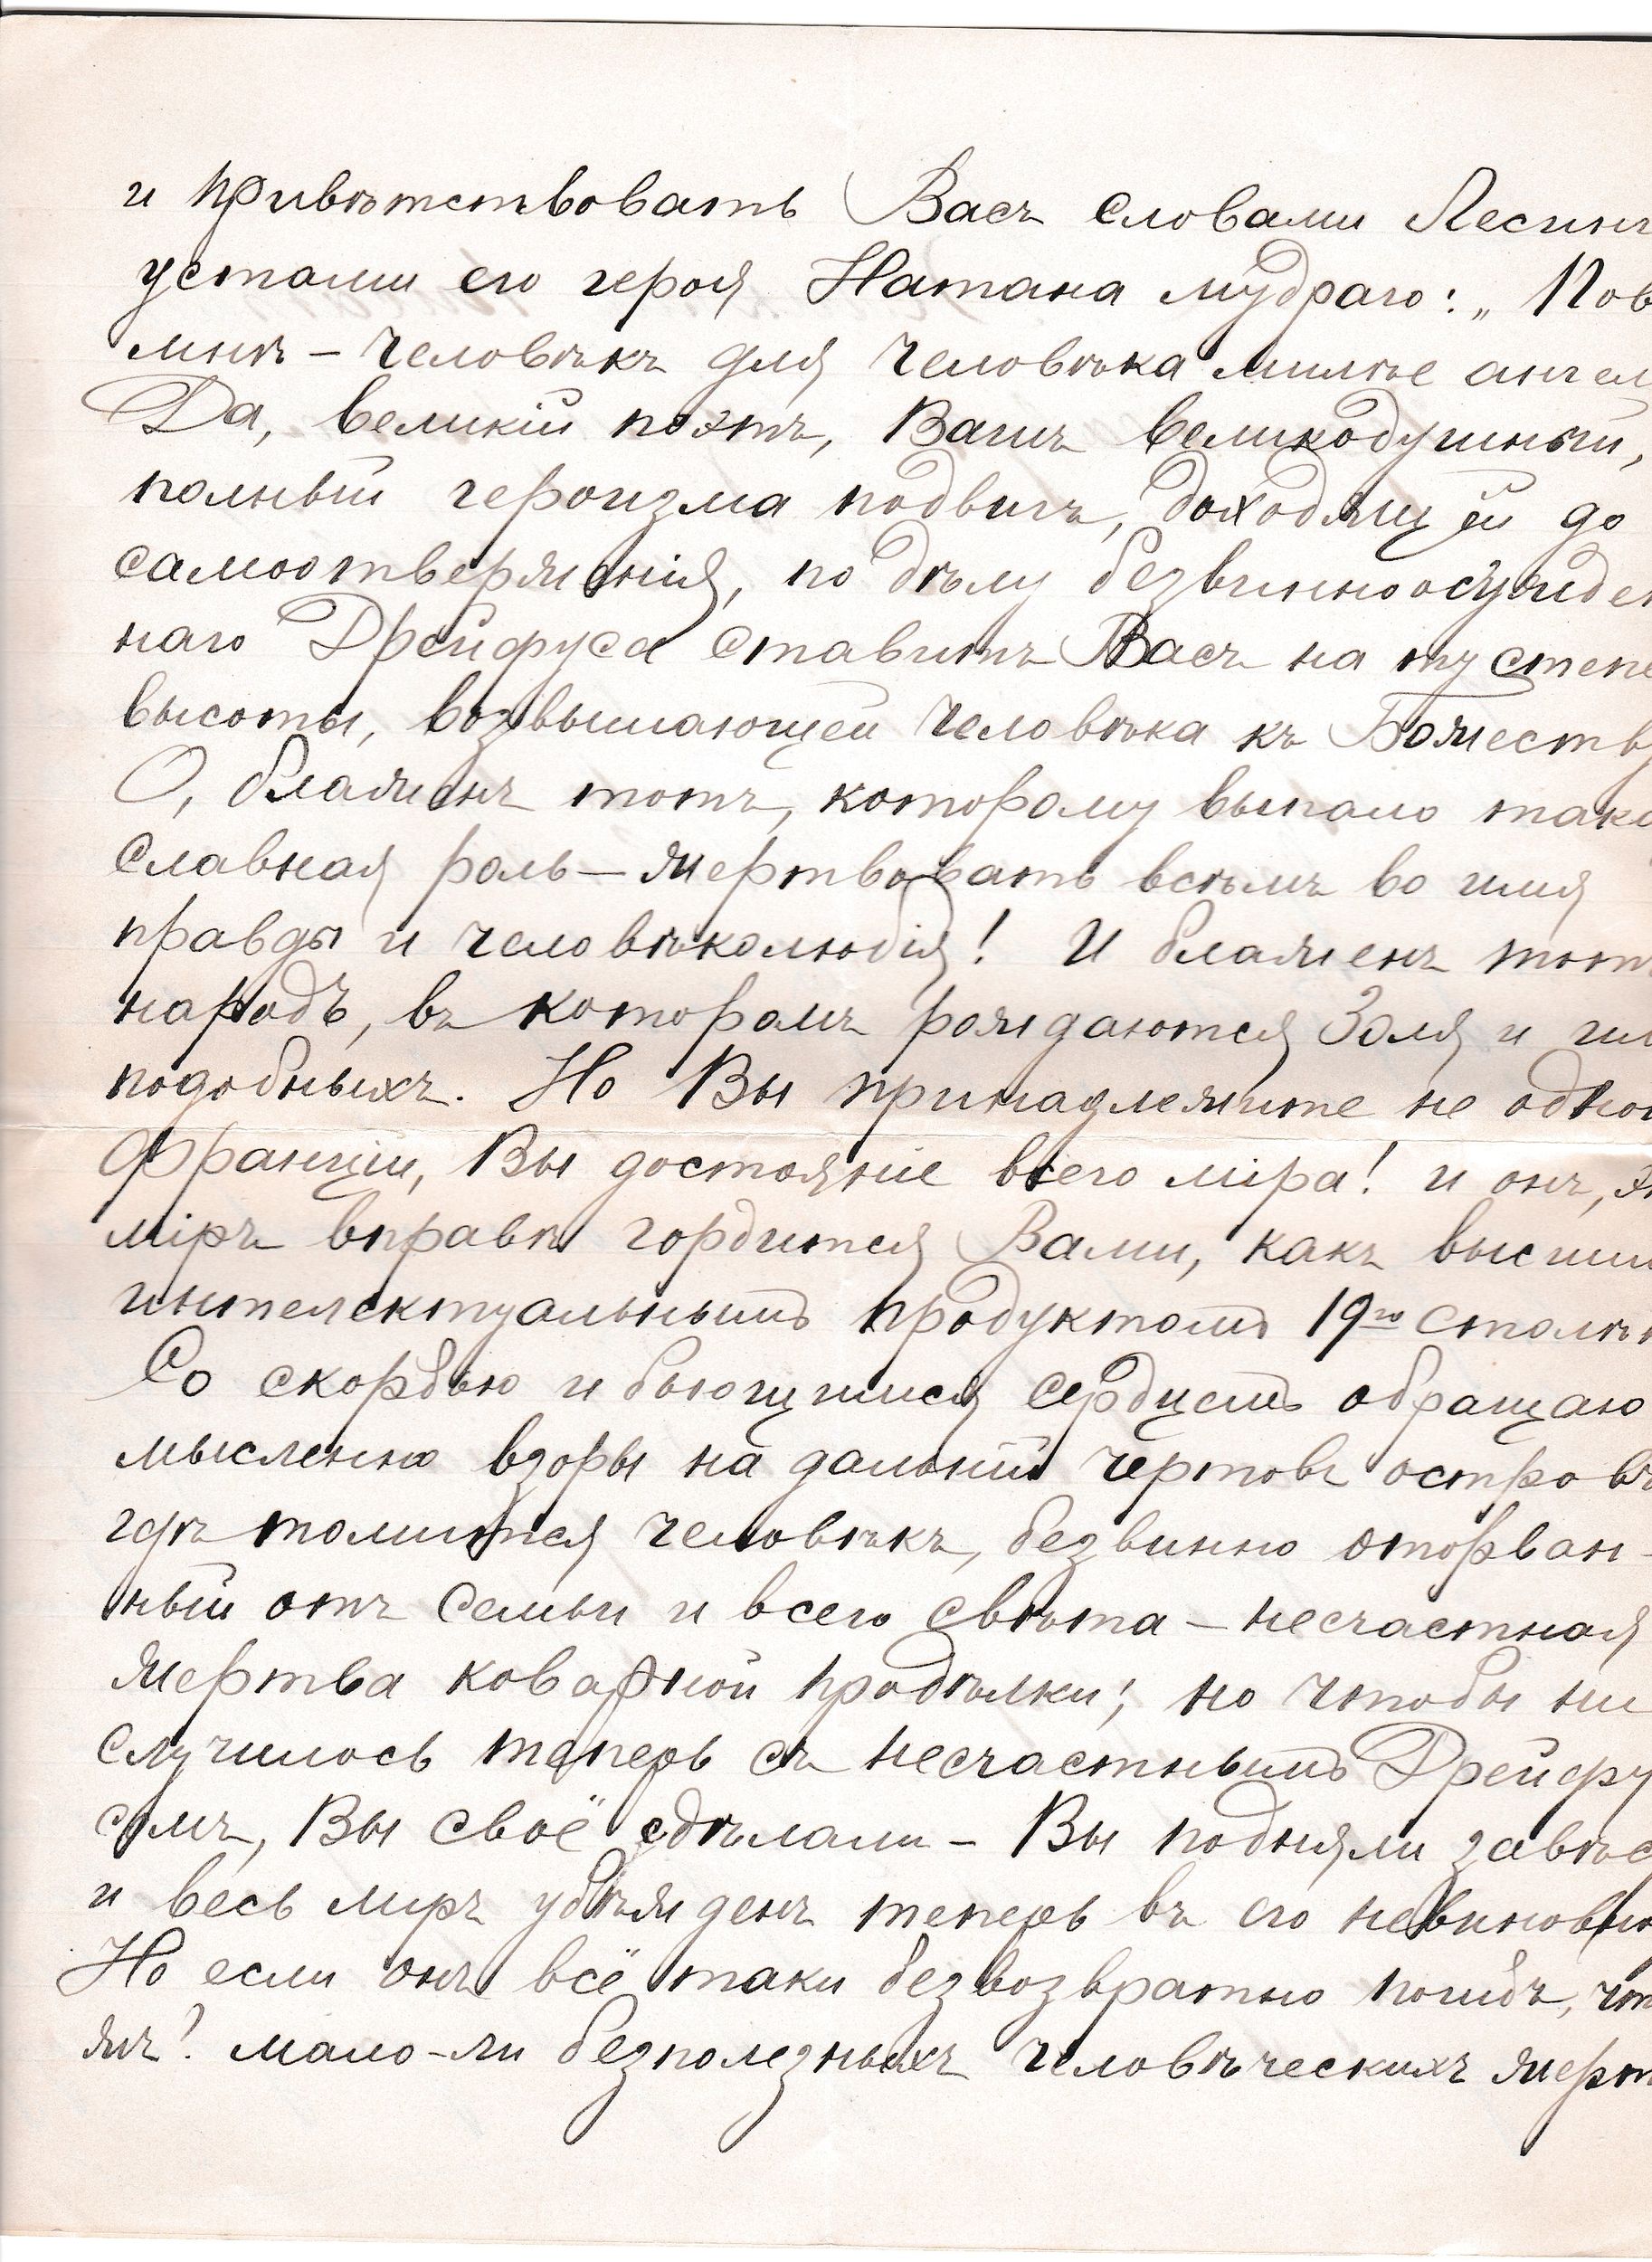 и привѣтствовать Васъ словами Лесинг
устами его героя Натана мудраго: „ Пов
мнѣ – человѣкъ для человѣка милѣе ангел
Да, великій поэтъ, Вашъ великодушный,
полный героизма подвигъ, доходящій до
самоотверженія, по дѣлу безвинноосужден
наго Дрейфуса ставитъ Васъ на ту степе
высоты, возвышающей человѣка къ Божеству
О, блаженъ тотъ, которому выпало така
славная роль – жертвовать всѣмъ во имя
правды и человѣколюбія! И блаженъ тот
народъ, въ которомъ рождаются Золя и им
подобныхъ. Но Вы принадлежите не одной
Франціи, Вы достояніе всего міра! и онъ, э
міръ вправѣ гордится Вами, какъ высши
интелектуальнымъ продуктомъ 19го столѣт
Со скорбью и бьющимися сердцемъ обращаю
мысленно взоры на дальній чертовъ островъ
гдѣ томится человѣкъ, безвинно оторван-
ный отъ семьи и всего свѣта – несчастная
жертва коварной продѣлки; но чтобы ни
случилось теперь съ несчастнымъ Дрейфу
сомъ, Вы своё сдѣлали – Вы подняли завѣс
и весь миръ убѣжденъ теперь въ его невиновно
Но если онъ всё таки безвозвратно погибъ, чт
жъ? мало-ли безполезныхъ человѣческихъ жерт